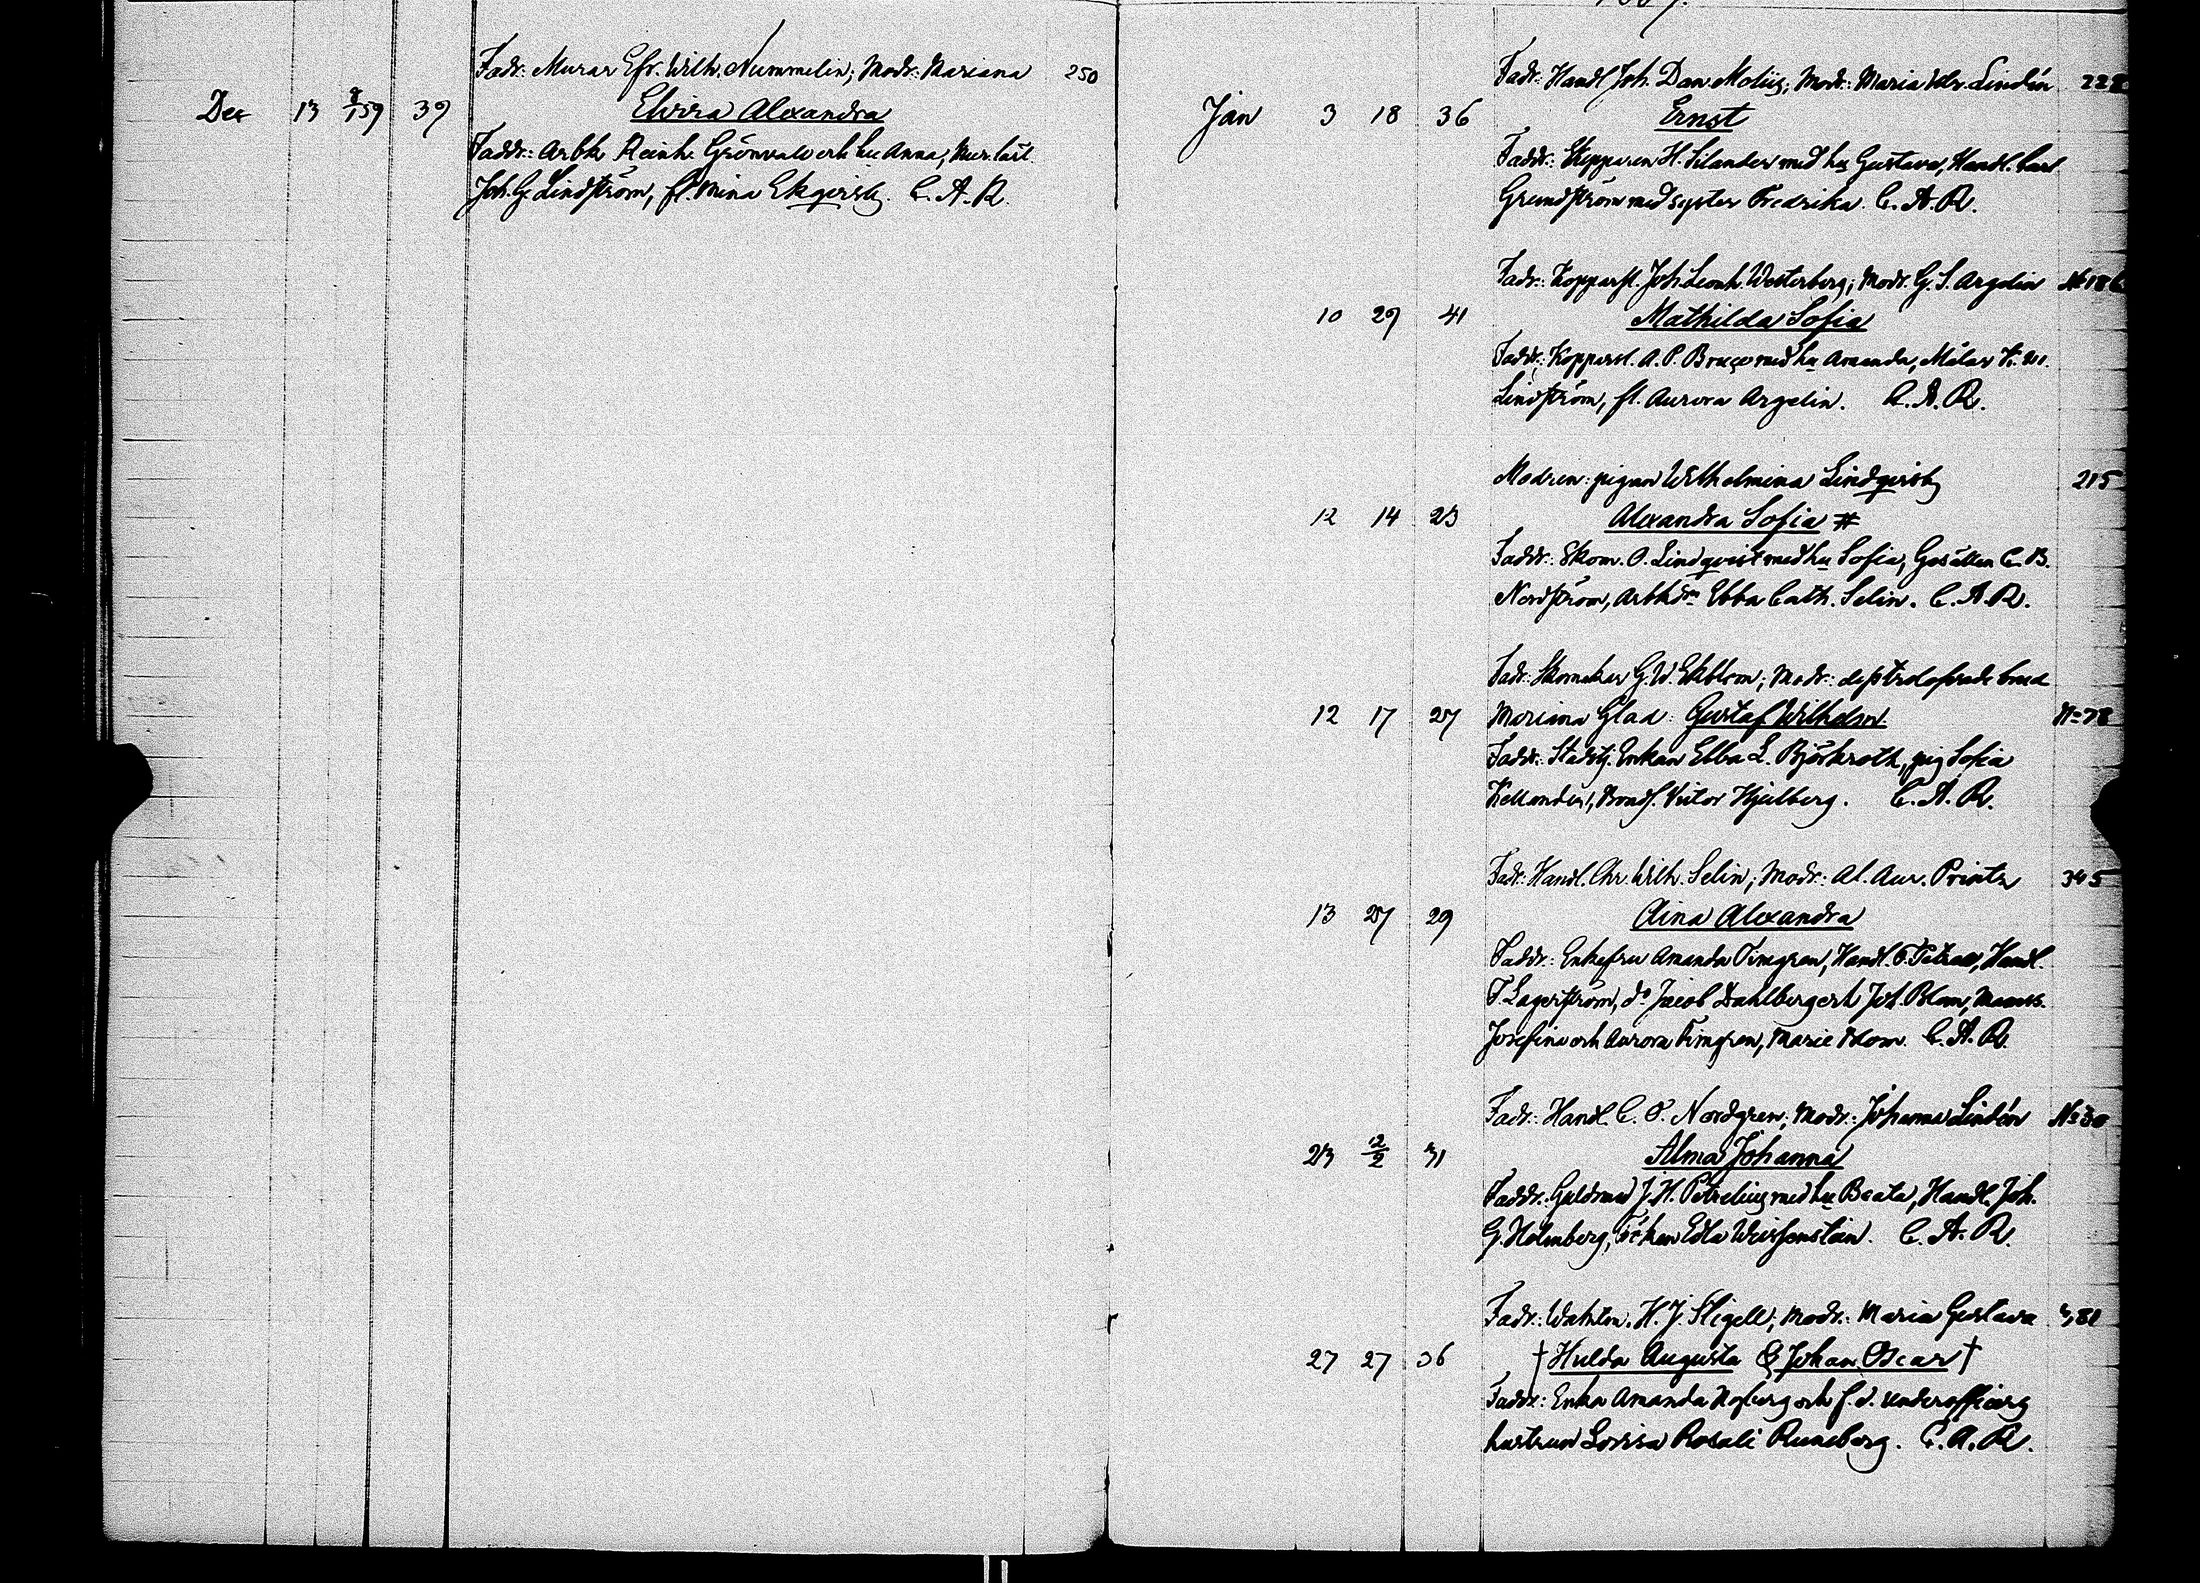 Fadr: Murar Efr. Wilh. Nummelin; Modr: Mariana 250
Dec 13 9/1 59 39 Elvira Alexandra
Faddr: Arbk Reinh. Grönvall och hu Anna, Mur. lärl.
Joh. G. Lindström, fl. Mina Ekqvist. C. A. R.
Fadr: Handl Joh. Dan Moliis; Modr: Maria Wlr. Lindén 228
Jan 3 18 36 Ernst
Faddr: Skepparen H. Silander med hu Gustava, Handl. Carl
Grundström med syster Fredrika. C. A. R.
Fadr: Kopparsl. Joh. Leonh. Westerberg; Modr. G. S. Argelin № 186
10 29 41 Mathilda Sofia
Faddr: Kopparsl. A. P. med hu Amanda, Målar
Lindström, fl. Aurora Argelin. C. A. R.
Modren: pigan Wilhelmina Lindqvist 215
12 14 23 Alexandra Sofia #
Faddr: Skom. O. Lindqvist med hu Sofia, Gesällen C. B.
Nordström, Arbkdr Ebba Cath. Selin. C. A. R.
Fadr: Skomakar G. W. Ekblom; Modr: dess trolofvade brud
12 17 27 Mariana Glad: Gustaf Wilhelm № 78
Faddr: Stadstj. Enkan Ebba L. Björkroth, pig Sofia
Kellander, Bonds. Victor Hjelberg. C. A. R.
Fadr: Handl. Chr. Wilh. Selin; Modr: Al. Aur. Printz 345
13 27 29 Aina Alexandra
Faddr: Enkefru Amanda Timgren, Handl. Handl.
F. Lagerström, do Jacob Dahlberg och Joh. Blom, Mamss.
Josefina och Aurora Timgren, Marie Blom. C. A. R.
Fadr: Handl. C. F. Nordgren; Modr: Johanna Lindén № 30
23 2/2 31 Alma Johanna
Faddr: Guldsmed J. H. Petrelius med hu Beata, Handl. Joh.
G. Holmberg, Fröken Edla Weissenstein. C. A. R.
Fadr: Waktm. H. J. Stigell; Modr: Maria Gustava 381
27 27 36 † Hulda Augusta & Johan Oscar †
Faddr: Enka Amanda Hofberg och f. d. underofficers
hustrun Lovisa Rosali Runeberg. C. A. R.